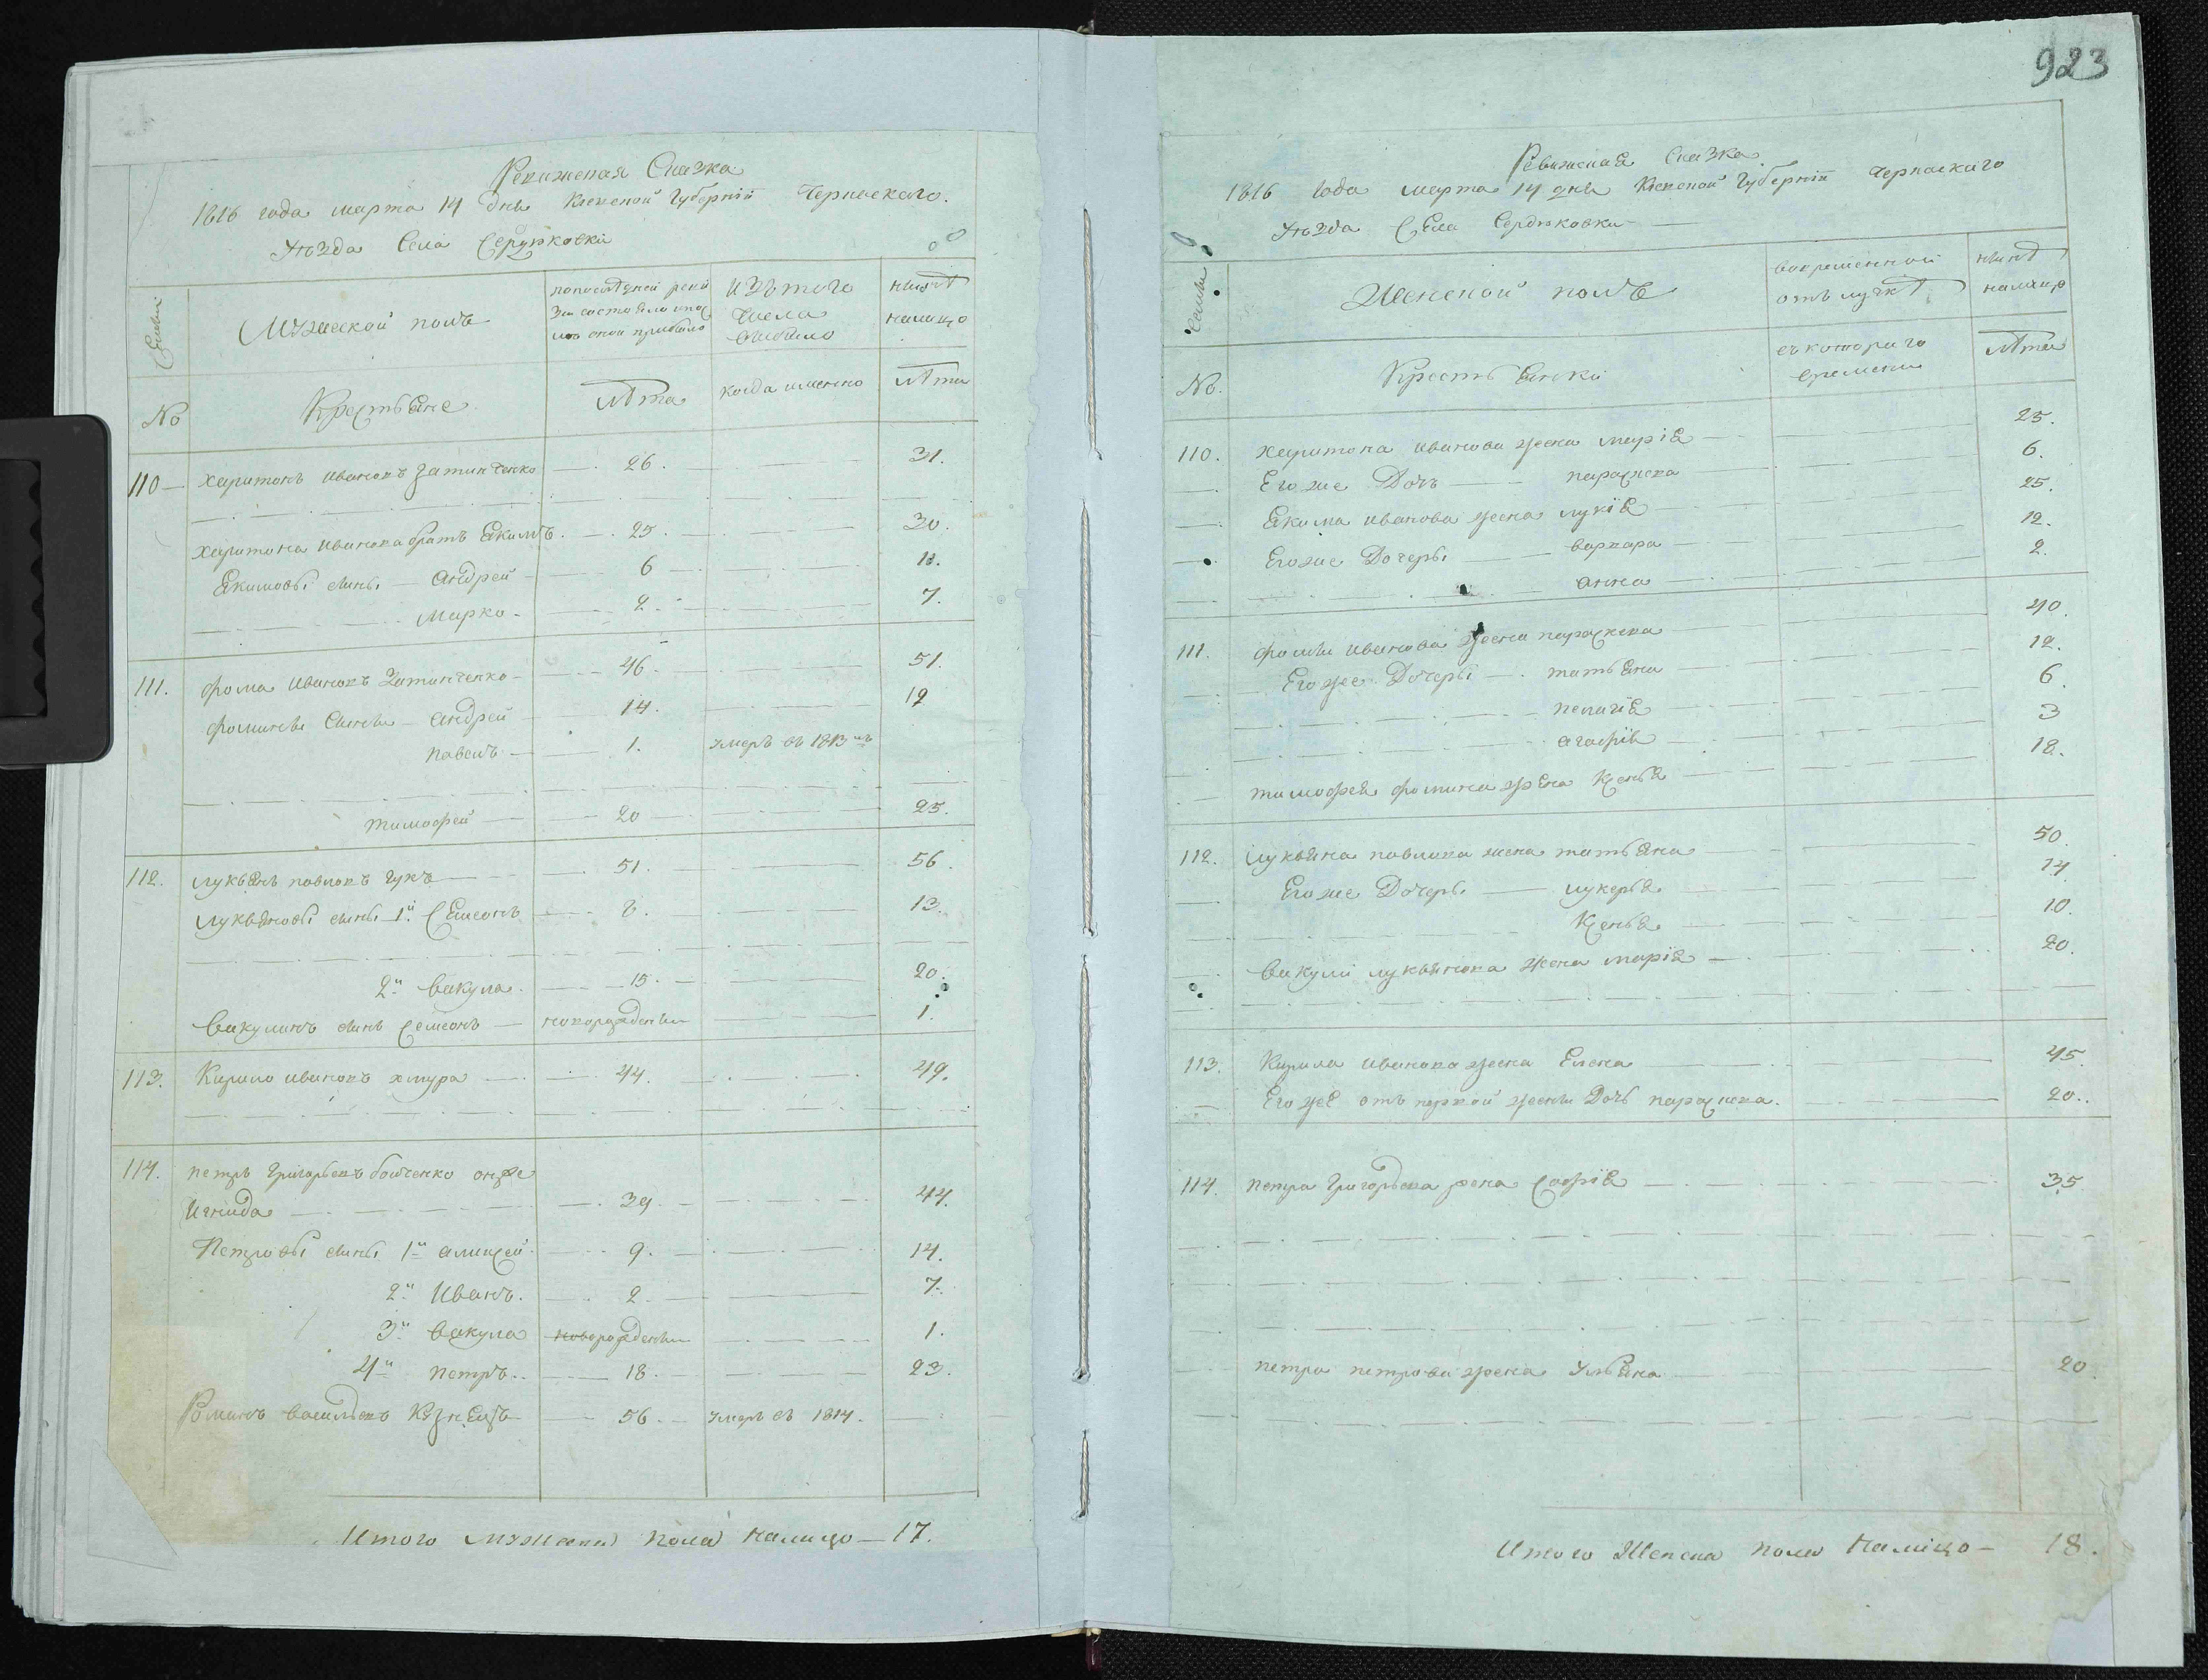 923
Ревижская Сказка
1816 года марта 14 дня Киевской Губерніи Черкаскаго.
Уѣзда Села Сердюковки
Семьи
Мужеской полъ
по последней реви
зіи состояло и по
слѣ оной прибыло
Изъ того
числа
выбыло
нынѣ
налицо
No
Крестьяне
Лѣта
когда именно
Лѣта
110 — Харитонъ Ивановъ Затинченко — 26. — 31.
Харитона Иванова братъ Якимъ. — 25. — 30.
Якимовы сыны — Андрей — 6 — 11.
Марко — 2. — 7.
111. Фома Ивановъ Затинченко — 46 — 51.
Фомины сыны — Андрей — 14. — 19
Павелъ — 1. умеръ въ 1813мъ
Тимофей — 20 — 25.
112. Лукьянъ Павловъ Гукъ — 51. — 56.
Лукьяновы сыны 1й Семеонъ — 8. — 13.
2й Вакула — 15. — 20.
Вакулинъ сынъ Семеонъ — новорожденны — 1.
113. Кирило Ивановъ Хмура — 44. — 49.
114. Петръ Григорьевъ Бойченко онже
Игнида — 39. — 44.
Петровы сыны 1й Аликсей — 9. — 14.
2й Иванъ. — 2. — 7.
3й Вакула новорожденны — 1.
4й Петръ.. — 18. — 23.
Романъ Васильевъ — 56. — умеръ въ 1814.
Итого мужеска пола налицо — 17.
Ревижская Сказка.
1816 года марта 14 дня Киевской Губерніи Черкаскаго
Уѣзда Села Сердюковки —
Семьи
Женской полъ
во временной
отлучкѣ
нынѣ
налицо
No.
Крестьянки
съ котораго
времени
Лѣта
110. Харитона Иванова жена Марія — 25.
Его же Дочь — Параскева — 6.
Якима Иванова жена Лукія — 25.
Его же Дочеры — Варвара — 12.
Анна — 2.
111. Фомы Иванова жена Параскева — 40.
Его же Дочеры — Татьяна — 12.
Пелагія — 6.
Агафія — 3
Тимофея Фомина жена Ксенья — 18.
112. Лукьяна Павлова жена Татьяна — 50.
Его же Дочеры — Лукерья — 14.
Ксенья — 10.
Вакулы Лукьянова жена Марія — 20.
113. Кирила Иванова жена Елена — 45.
Его же отъ первой жены Дочь Параскева. — 20.
114. Петра Григорьева жена Софія — 35
Петра Петрова жена Ульяна — 20.
Итого женска пола налицо — 18.